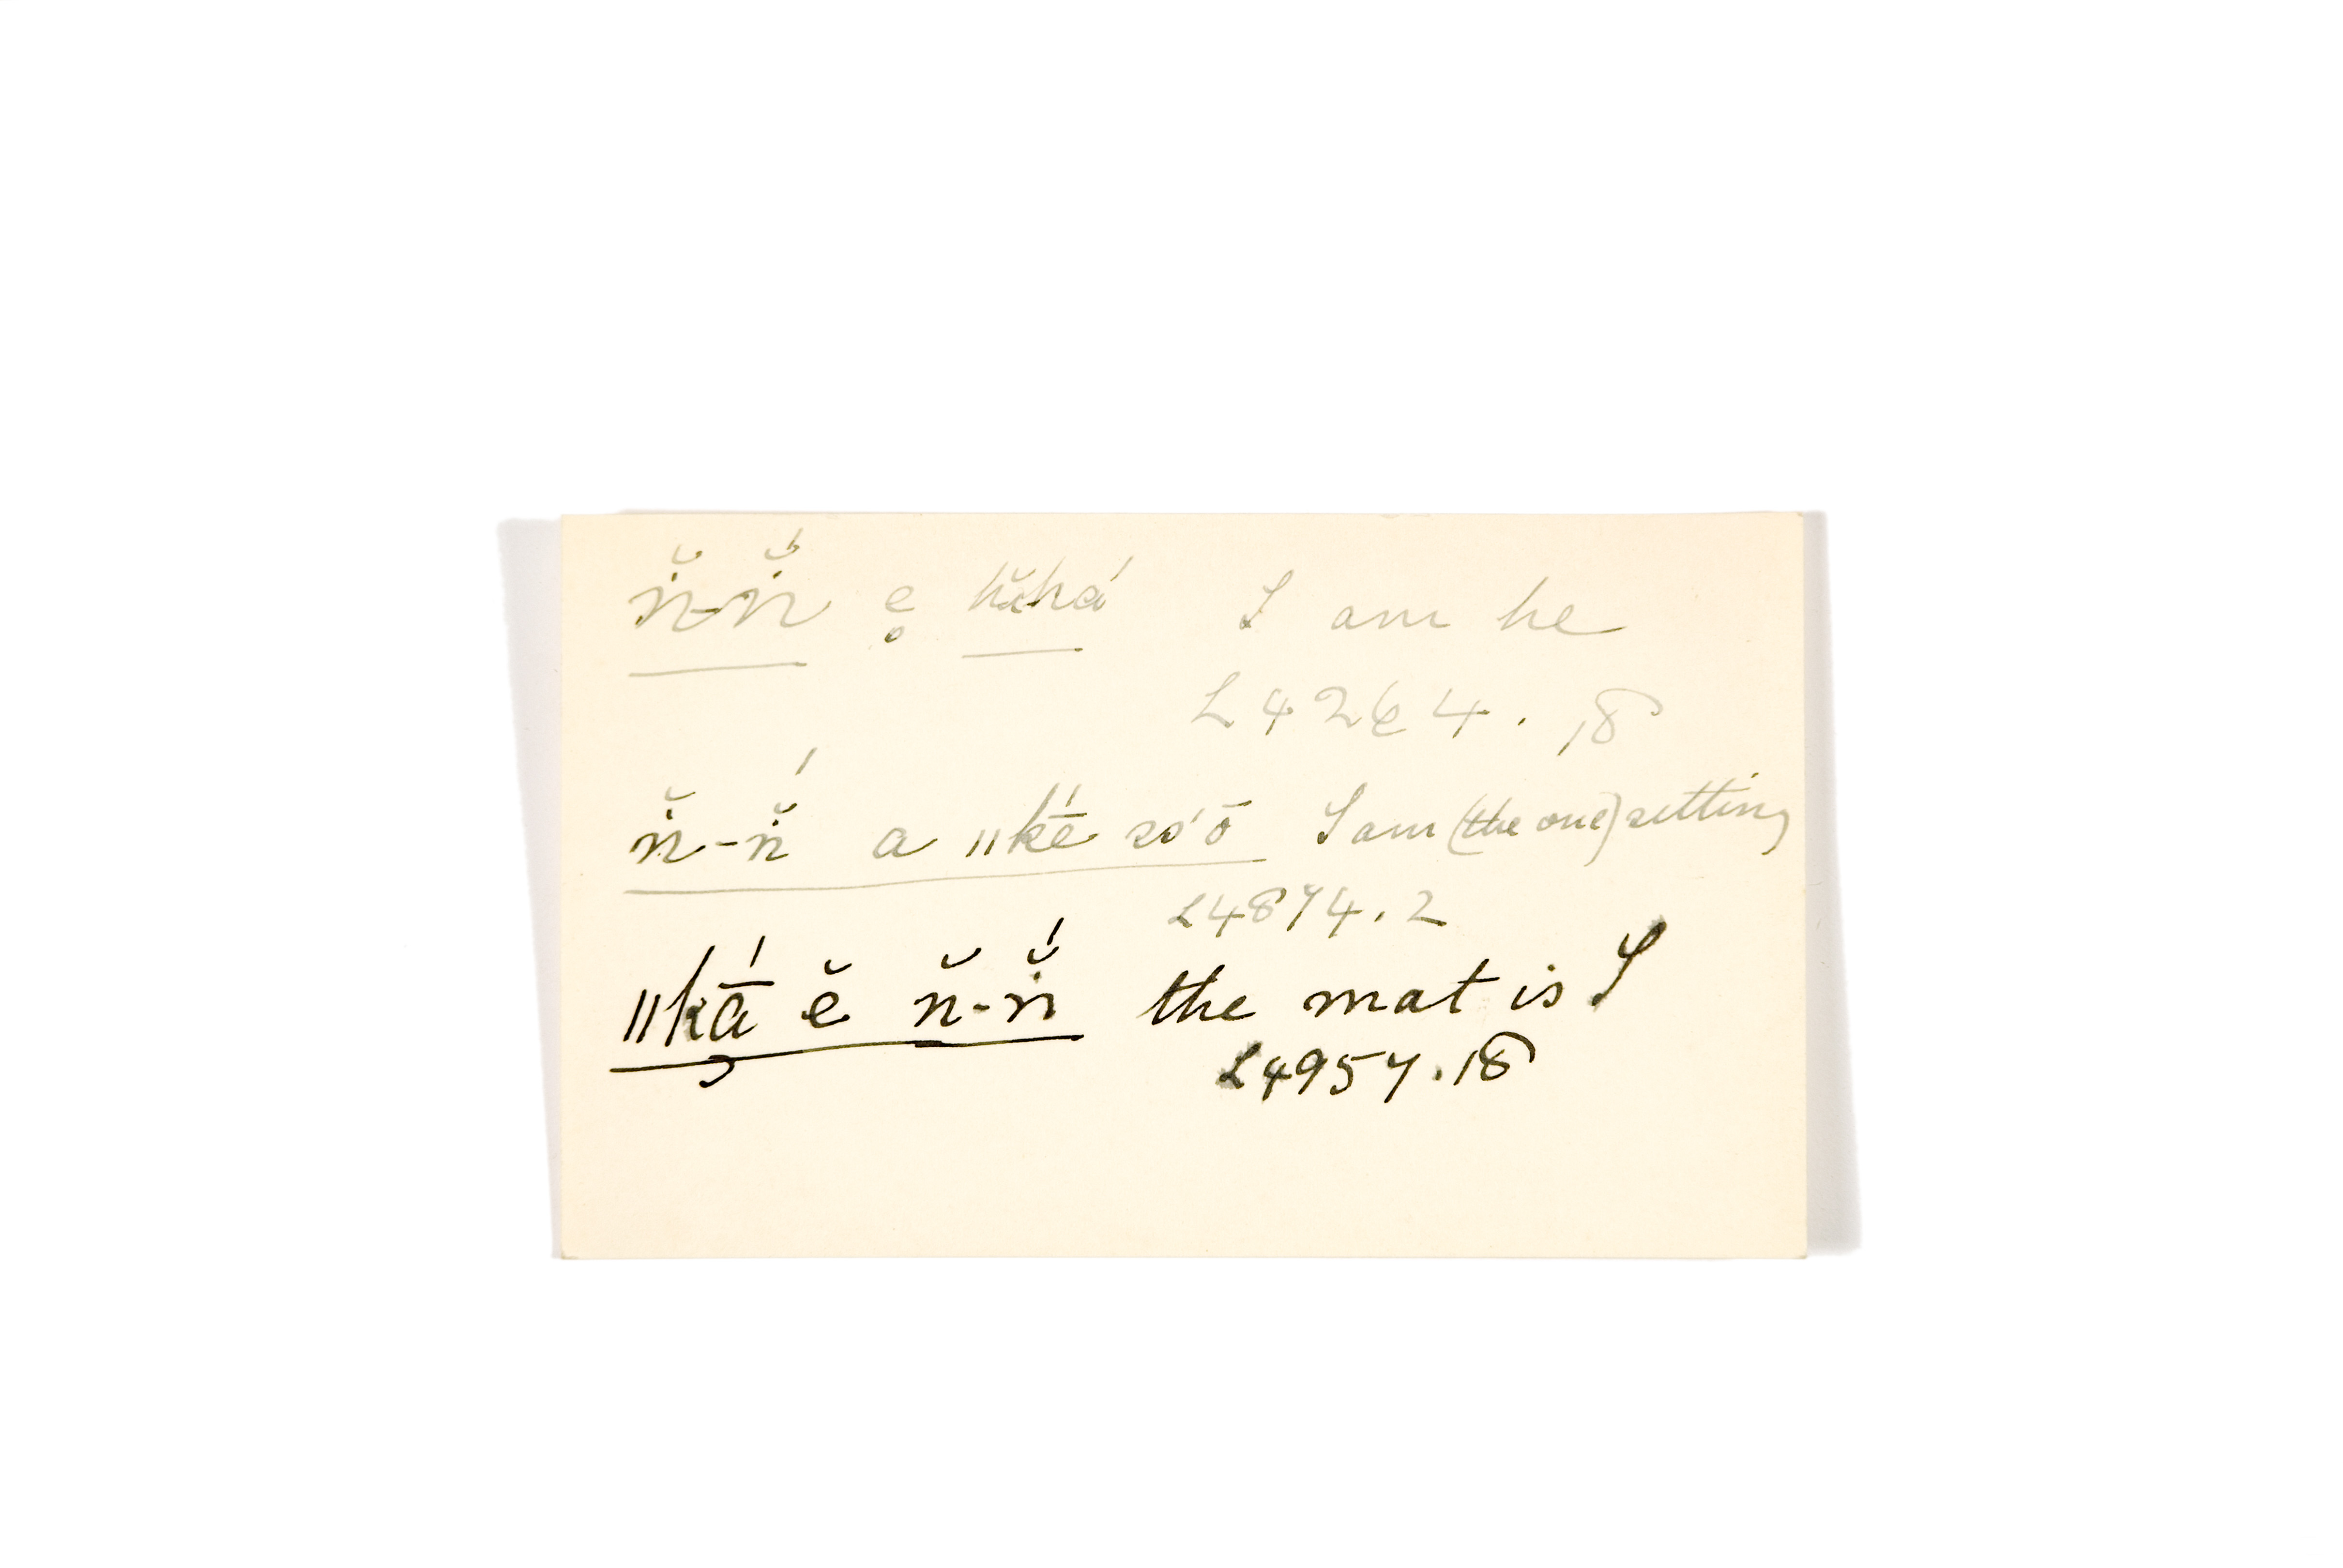 ṅ̆-ṅ̆́ e̥ hĭhá I am he
L 4264. 18
ṅ̆-ṅ̆́ a ǁkḗ ss'ō I am (the one) sitting
L4874.2
ǁkā̰́ ĕ n̆-ṅ̆́ the mat is I
L4957.18